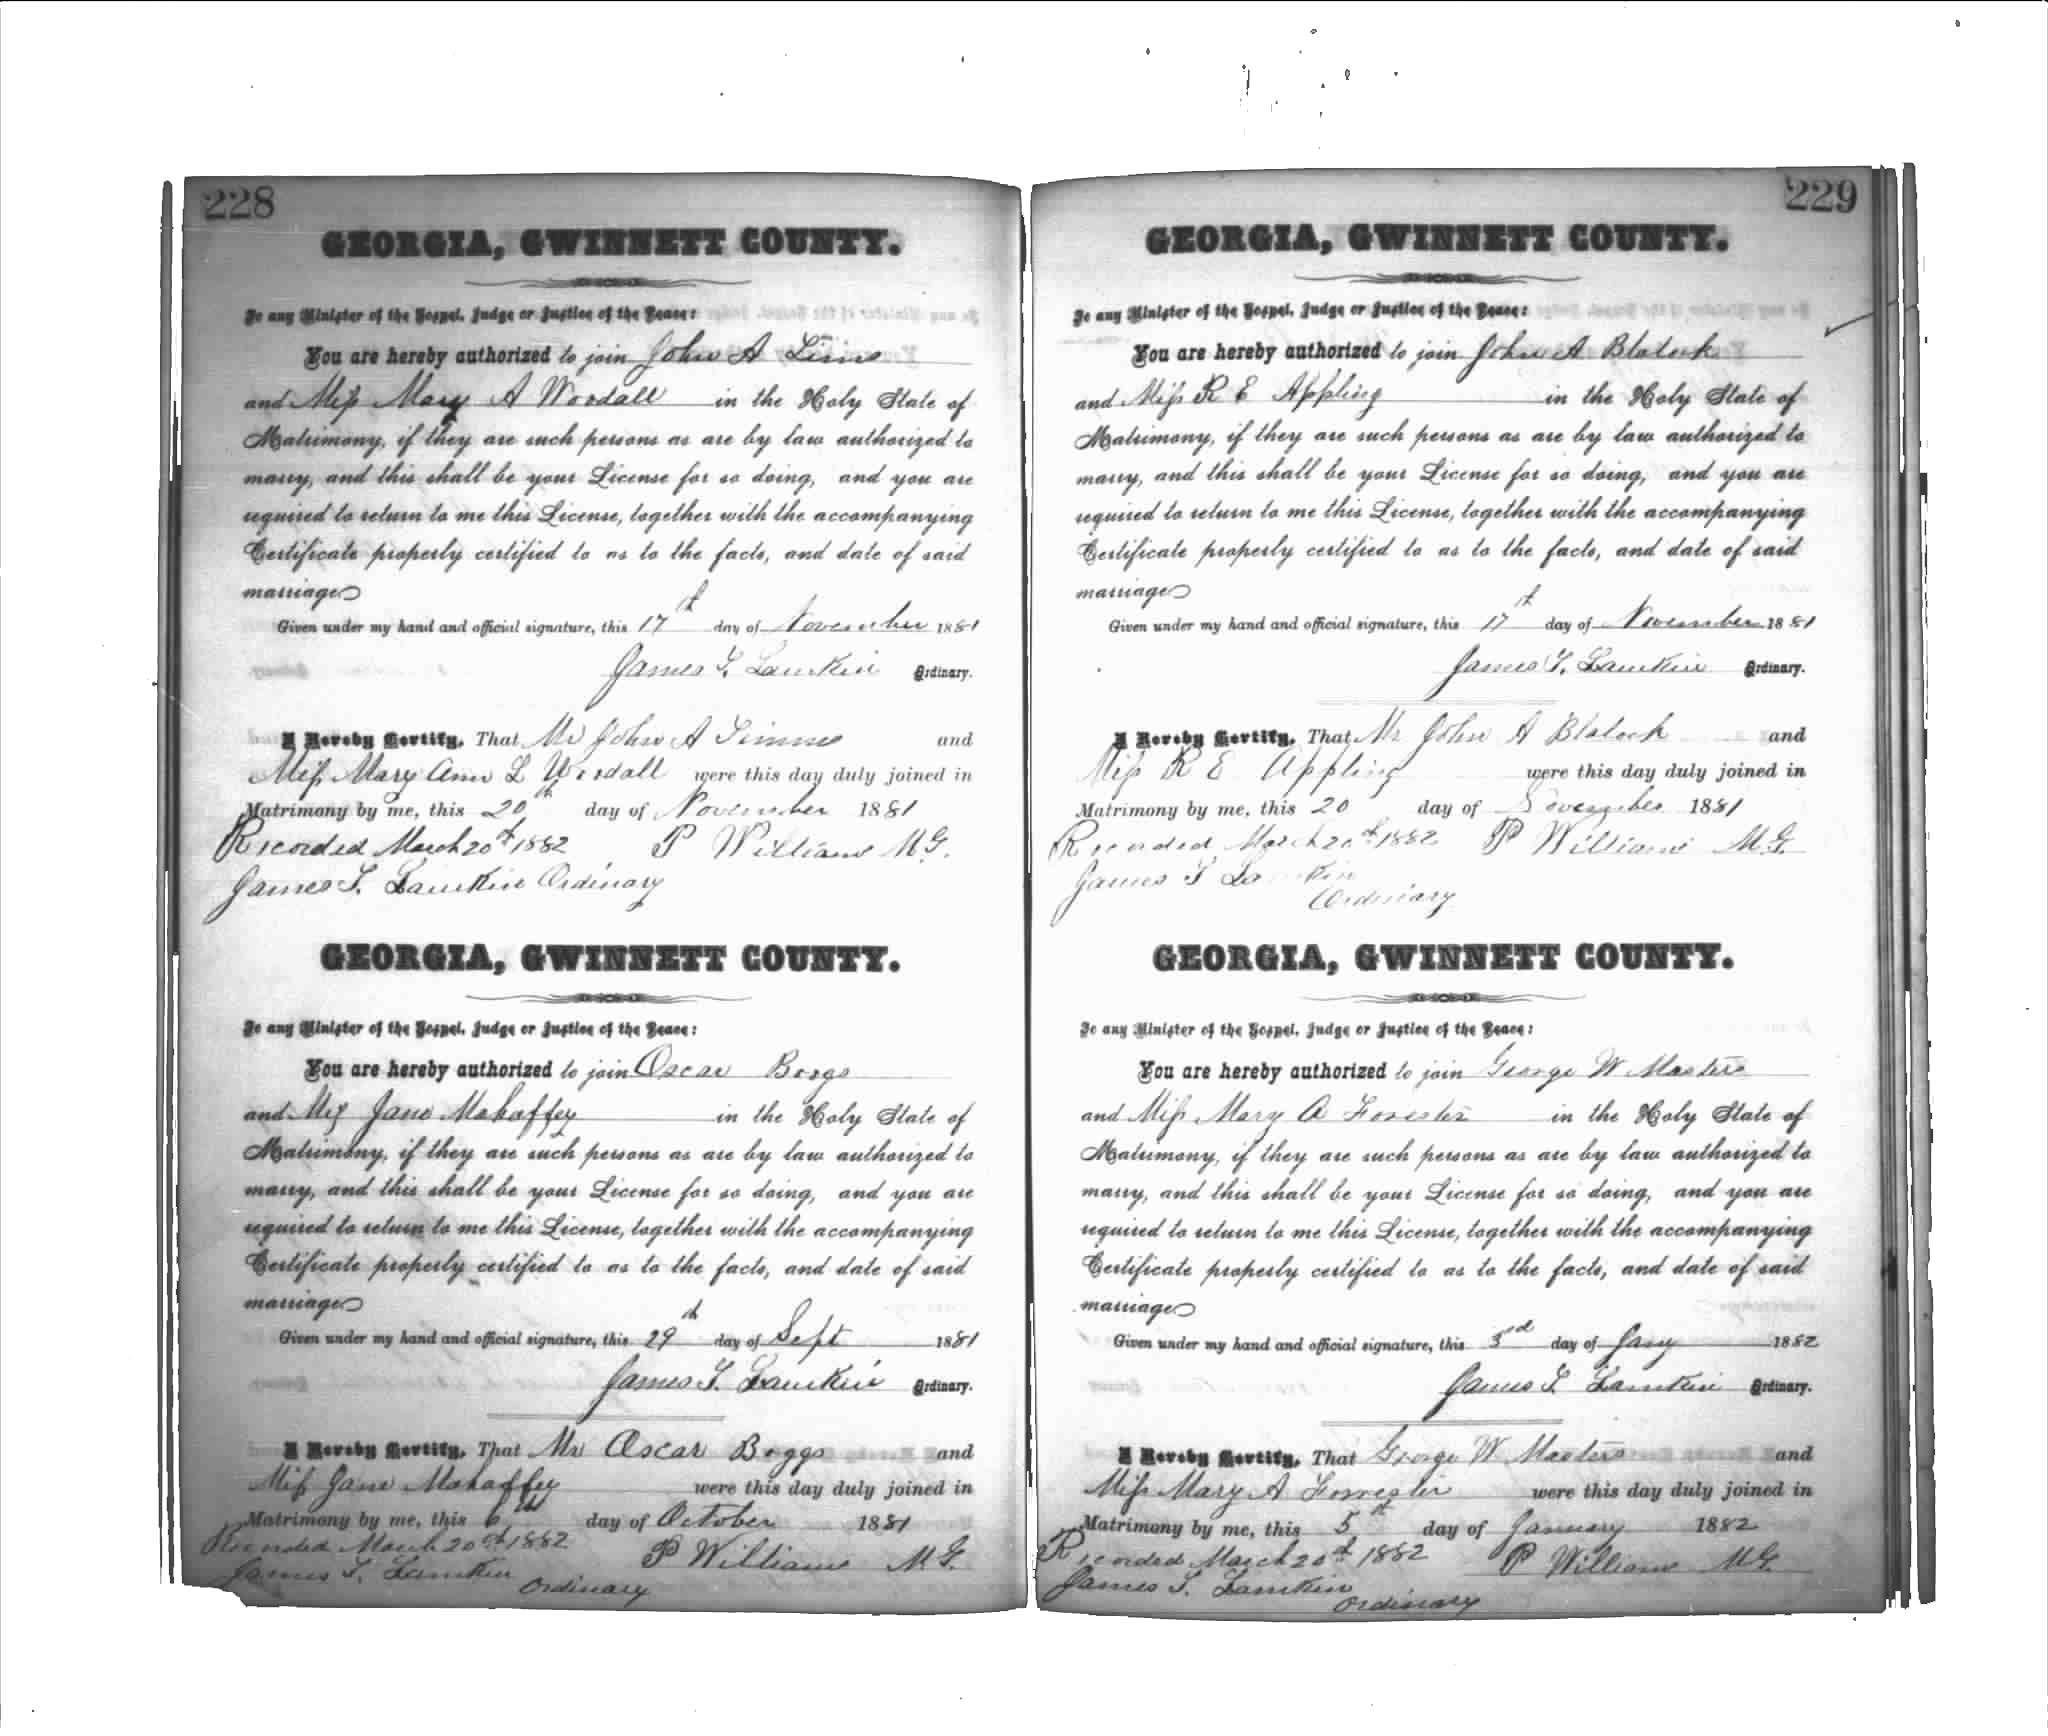 228
GEORGIA, GWINNETT COUNTY.
To any Minister of the Gospel, Judge or Justice of the Peace:
You are hereby authorized to join John A Sims
and Miss Mary A Woodall in the Holy State of
Matrimony, if they are such persons as are by law authorized to
marry, and this shall be your License for so doing, and you are
required to return to me this License, together with the accompanying
Certificate properly certified to as to the facts, and date of said
marriage
Given under my hand and official signature, this 17th day of November 1881
James T. Lamkin Ordinary.
I Hereby Certify, That Mr John A Simms and
Miss Mary Ann L Woodall were this day duly joined in
Matrimony by me, this 20th day of November 1881
Recorded March 20th 1882 P Williams M.G.
James T. Lamkin Ordinary
GEORGIA, GWINNETT COUNTY.
To any Minister of the Gospel, Judge or Justice of the Peace:
You are hereby authorized to join Oscar Boggs
and Miss Jane Mahaffey in the Holy State of
Matrimony, if they are such persons as are by law authorized to
marry, and this shall be your License for so doing, and you are
required to return to me this License, together with the accompanying
Certificate properly certified to as to the facts, and date of said
marriage
Given under my hand and official signature, this 29th day of Sept 1881
James T. Lamkin Ordinary.
I Hereby Certify, That Mr Oscar Boggs and
Miss Jane Mahaffey were this day duly joined in
Matrimony by me, this 6th day of October 1881
Recorded March 20th 1882 P Williams M.G.
James T. Lamkin
Ordinary
229
GEORGIA, GWINNETT COUNTY.
To any Minister of the Gospel, Judge or Justice of the Peace:
You are hereby authorized to join John A Blalock
and Miss R E Appling in the Holy State of
Matrimony, if they are such persons as are by law authorized to
marry, and this shall be your License for so doing, and you are
required to return to me this License, together with the accompanying
Certificate properly certified to as to the facts, and date of said
marriage
Given under my hand and official signature, this 17th day of November 1881
James T. Lamkin Ordinary.
I Hereby Certify, That Mr John A Blalock and
Miss R E Appling were this day duly joined in
Matrimony by me, this 20 day of November 1881
Recorded March 20th 1882 P Williams M.G.
James T Lamkin
Ordinary
GEORGIA, GWINNETT COUNTY.
To any Minister of the Gospel, Judge or Justice of the Peace:
You are hereby authorized to join George W Masters
and Miss Mary A Forester in the Holy State of
Matrimony, if they are such persons as are by law authorized to
marry, and this shall be your License for so doing, and you are
required to return to me this License, together with the accompanying
Certificate properly certified to as to the facts, and date of said
marriage
Given under my hand and official signature, this 3rd day of Jany 1882
James T. Lamkin Ordinary.
I Hereby Certify, That George W Masters and
Miss Mary A Forrester were this day duly joined in
Matrimony by me, this 5th day of January 1882
Recorded March 20th 1882 P Williams M.G.
James T. Lamkin
Ordinary